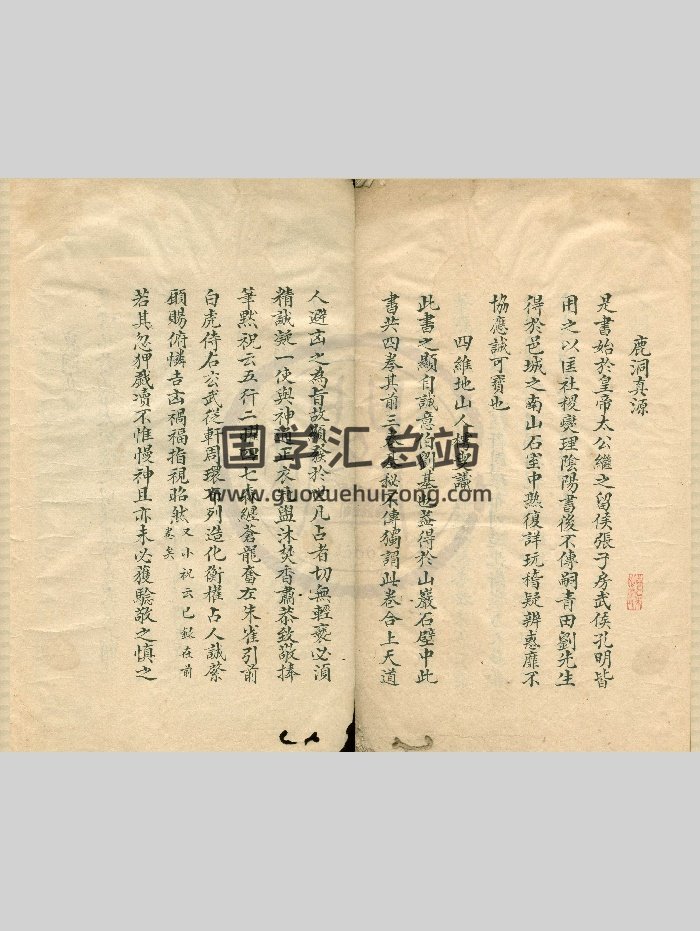 鹿洞真源
是書始於皇帝太公繼之留侯張子房武侯孔明皆
用之以匡社稷爕理陰陽書後不傳嗣青田劉先生
得於邑城之南山石室中熟復詳玩稽疑辨惑靡不
協應誠可寶也
四維地山人樓 識
此書之顯自誠意伯劉基 葢得於山巖石壁中此
書共四卷其前三 秘不傳獨謂此卷合上天道
人避凶之為旨故顯發於 凡占者切無輕褻必湏
精誠凝一使與神 正衣 盥沐焚香肅恭致敬捧
筆默祝云五行二 四七 纏蒼龍奮左朱雀引前
白虎侍右公武從軒周環布列造化衡權占人誠祭
願賜俯憐吉凶禍福指視昭然又小祝云已錄在前卷矣
若其忽狎戲凟不惟慢神且亦未必獲騐敬之慎之
国学汇总站
www.guoxuehuizong.com